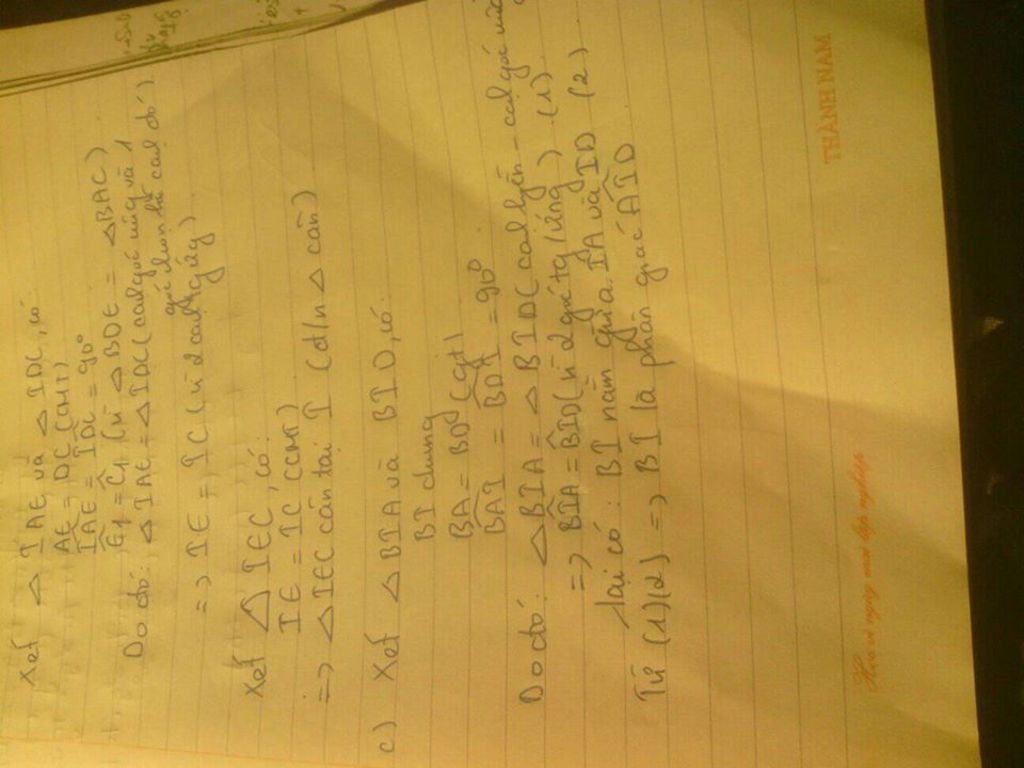 Xét △ IAE và △ IDC, có
AE = DC (CMT)
IAE = IDC = 90°
E1 = C1 (vì △ BDE = △BAC)
Do đó: △ IAE = △ IDC (cạnh góc vuông và 1
góc nhọn kề cạnh đó)
=> IE = IC (vì 2 cạnh
Xét △ IEC, có:
IE = IC (CMT)
=> △ IEC cân tại I (đ/n △ cân)
c) Xét △ BIA và BID, có:
BI chung
BA = BD (gt)
BAI = BDI = 90°
Do đó: △BIA = △ BID (cạnh huyền - cạnh góc
=> BIA = BID (vì 2 góc tg/ứng) (1)
Lại có: BI nằm giữa IA và ID (2)
Từ (1)(2) => BI là phân giác AID
THÀNH NAM